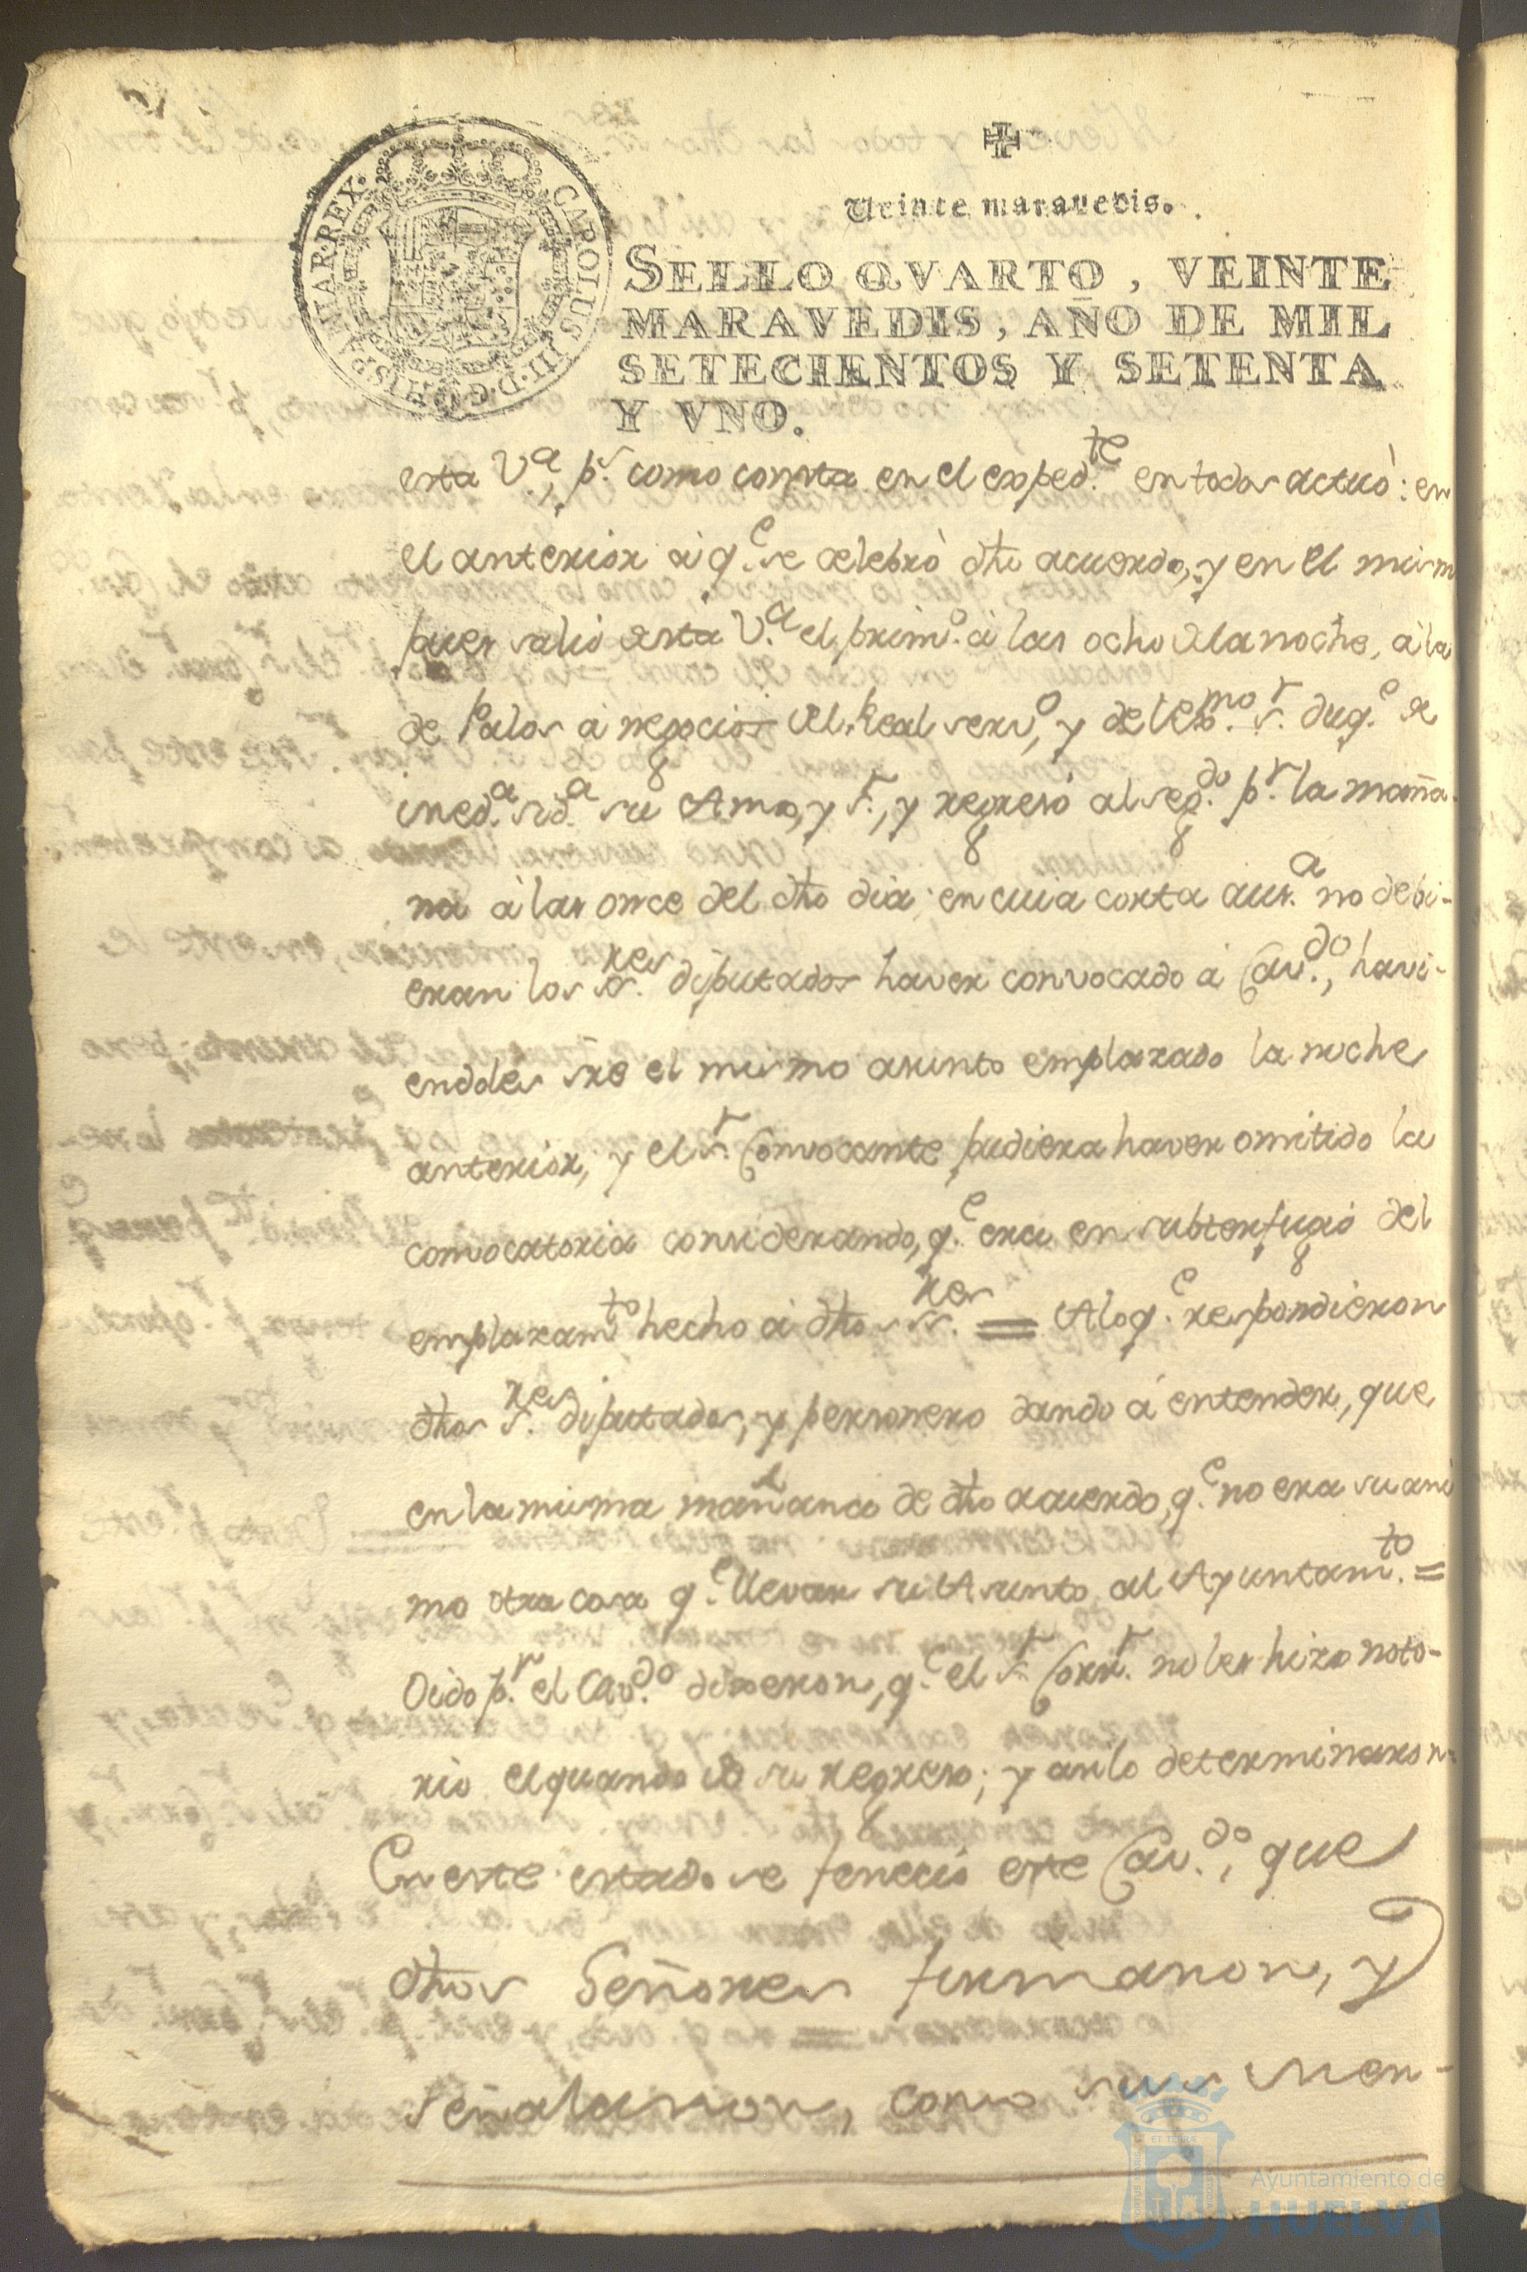 CAROLUS III D.G. HISPANIAR. REX.
Veinte maravedis.
SELLO QVARTO, VEINTE
MARAVEDIS, AÑO DE MIL
SETECIENTOS Y SETENTA
Y VNO.
esta V.ª, p.r como consta en el exped.te en todos actuò: en
el anterior à q.e se celebrò dho acuerdo, y en el mism
pues saliò esta V.ª el prim.o à las ocho de la noche, à la
de Palos à negocios del Real serv.o, y del Exmo S.r Duq.e de
Med.ª Sid.ª su Amo, y S.r, y regresò al seg.do p.r la maña-
na à las once del dho dia: en cuia corta aus.ª no debi-
eran los S.res diputados haver convocado à Cav.do, havi-
endoles sre el mismo asunto emplazado la noche
anterior, y el S.r Convocante pudiera haver omitido la
convocatoria considerando, q.e era en subterfugio del
emplazam.to hecho à dhos S.res = A lo q.e respondieron
dhos S.res diputados, y personero dando à entender, que
en la misma mañana de dho acuerdo, q.e no era su ani
mo otra cosa q.e llevar su Asunto al Ayuntam.to =
Oido p.r el Cav.do dixeron, q.e el S.r Corr.r no les hizo noto-
rio el quando de su regreso; y asi lo determinaron.
En este estado se feneciò este Cav.do, que
dhos Señores firmaron, y
señalaron, como sus Mer-
Ayuntamiento de
HUELVA